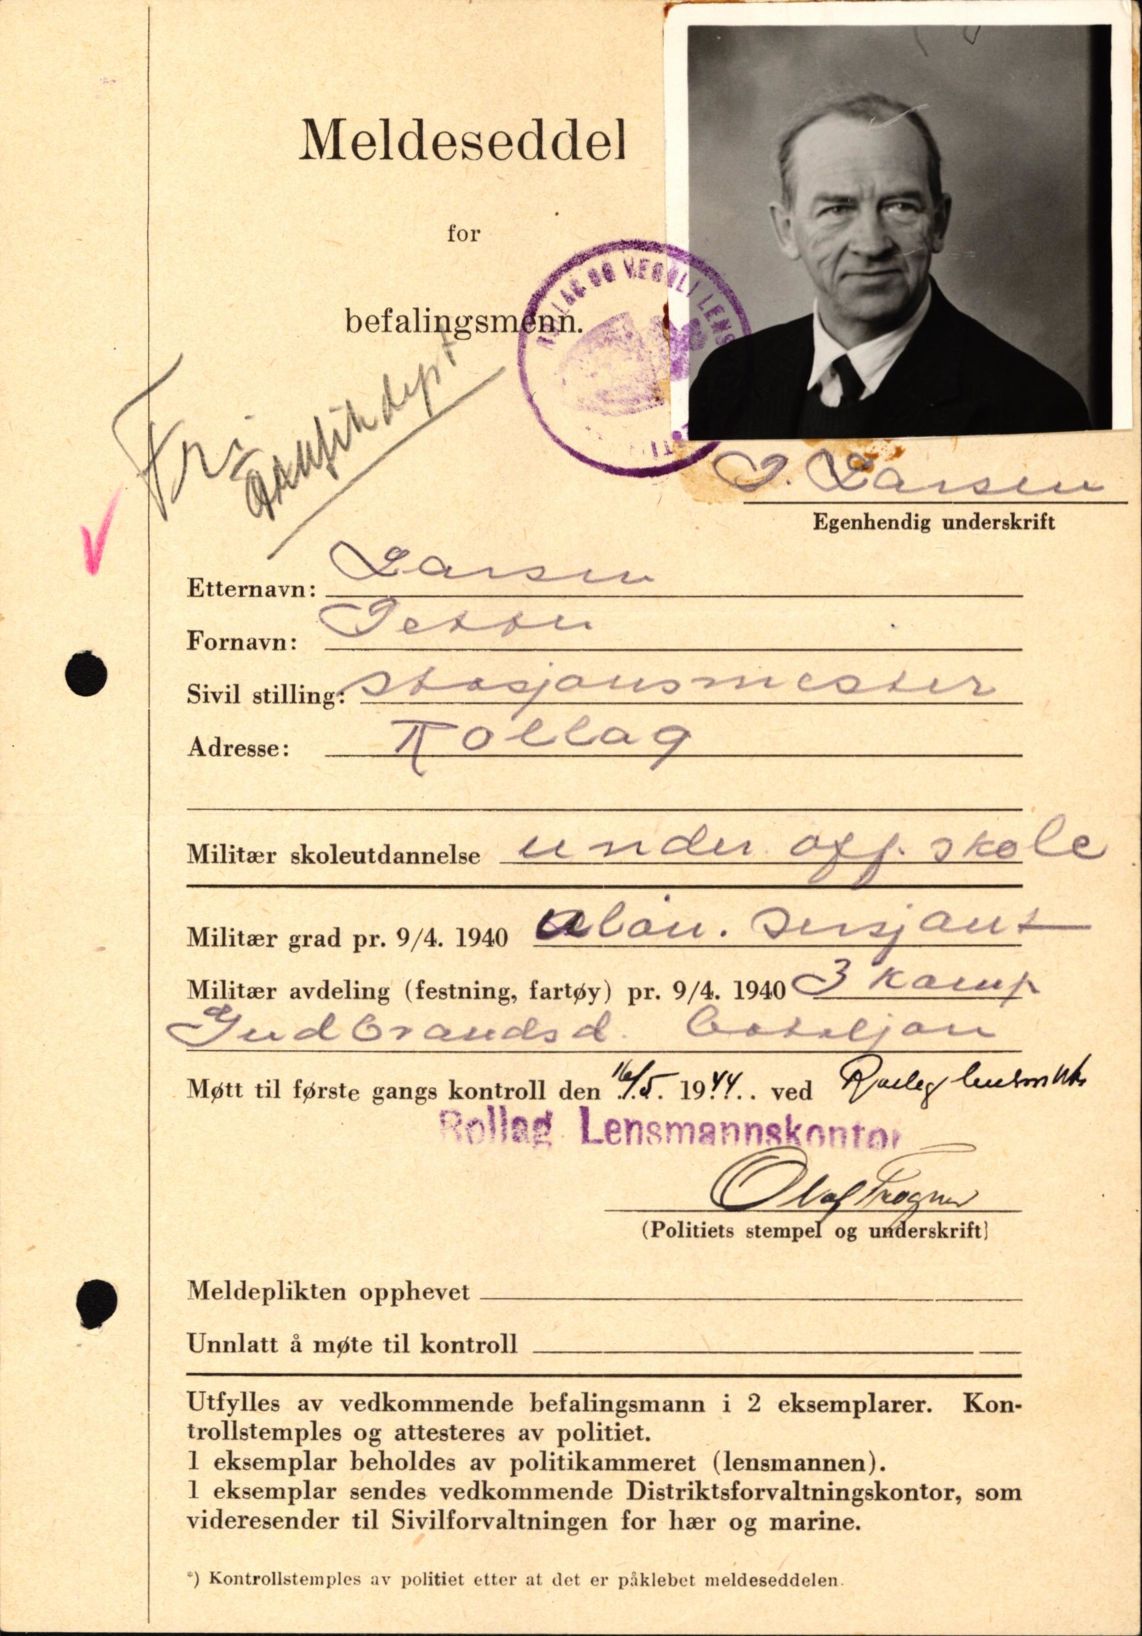 Meldeseddel
for
befalingsmenn.
Fri
ROLLAG OG VEGGLI LENS
P. Larsen
Egenhendig underskrift
Etternavn: Larsen
Fornavn: Petter
Sivil stilling: Stasjonsmester
Adresse: Rollag
Militær skoleutdannelse under off. skole
Militær grad pr. 9/4. 1940 sersjant
Militær avdeling (festning, fartøy) pr. 9/4. 1940 3 Komp
Gudbrandsd. Bataljon
Møtt til første gangs kontroll den 16/5. 1944. . ved Rollag
Rollag Lensmannskontor
Olaf Trogner
(Politiets stempel og underskrift)
Meldeplikten opphevet
Unnlatt å møte til kontroll
Utfylles av vedkommende befalingsmann i 2 eksemplarer. Kon-
trollstemples og attesteres av politiet.
1 eksemplar beholdes av politikammeret (lensmannen).
1 eksemplar sendes vedkommende Distriktsforvaltningskontor, som
videresender til Sivilforvaltningen for hær og marine.
*) Kontrollstemples av politiet etter at det er påklebet meldeseddelen.